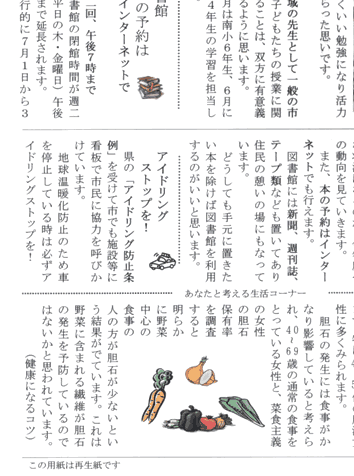 くいい勉強になり活力
らった思いです。
域の先生として一般の市
子どもたちの授業に関
ることは、双方に有意義
るように思います。
月は南小6年生、6月に
4年生の学習を担当し
書館
の予約は
インターネットで
二回、午後7時まで
書館の閉館時間が週二
平日の木・金曜日）午後
まで延長されます。
行的に7月1日から3
の動向を見ていきます。
また、本の予約はインター
ネットでも行えます。
図書館には新聞、週刊誌、
テープ類なども置いてあり
住民の憩いの場にもなって
います。
どうしても手元に置きた
い本を除けば図書館を利用
するのがいいと思います。
アイドリング
ストップを！
県の「アイドリング防止条
例」を受けて市でも施設等に
看板で市民に協力を呼びか
けています。
地球温暖化防止のため車
を停止している時は必ずア
イドリングストップを！
あなたと考える生活コーナー
性に多くみられます。
胆石の発生には食事がか
なり影響していると考えら
れ、40～69歳の通常の食事を
とっている女性と、菜食主義
の女性
の胆石
保有率
を調査
すると
明らか
に野菜
中心の
食事の
人の方が胆石が少ないとい
う結果がでています。これは
野菜に含まれる繊維が胆石
の発生を予防しているので
はないかと思われています。
（健康になるコツ）
この用紙は再生紙です